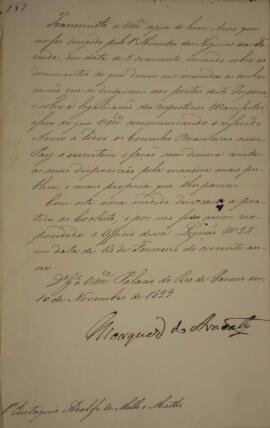 157
Transmitto a V.Mce copia de hum Aviso que
me foi dirigido pelo Ministro dos Negocios da Fa-
zenda, em data de 3 do corrente, versando sobre os
documentos de que devem vir munidas as embar-
cações que se dirigirem aos portos deste Imperio
e sobre a legalisação dos respectivos Manifestos,
afim de que V.Mce communicando o referido
Aviso a todos os Consules Brasileiros nesse
Paiz o executem e façam sem demora constar
as suas disposições pela maneira mais pu-
blica, e mais propria que lhes parecer.
Com esta nova medida
em data de 14 de Fevereiro do corrente an-
no.
Palacio do Rio de Janeiro em
10 de Novembro de 182
Marquez do Aracaty
Eustaquio Adolfo de Mello e Mattos